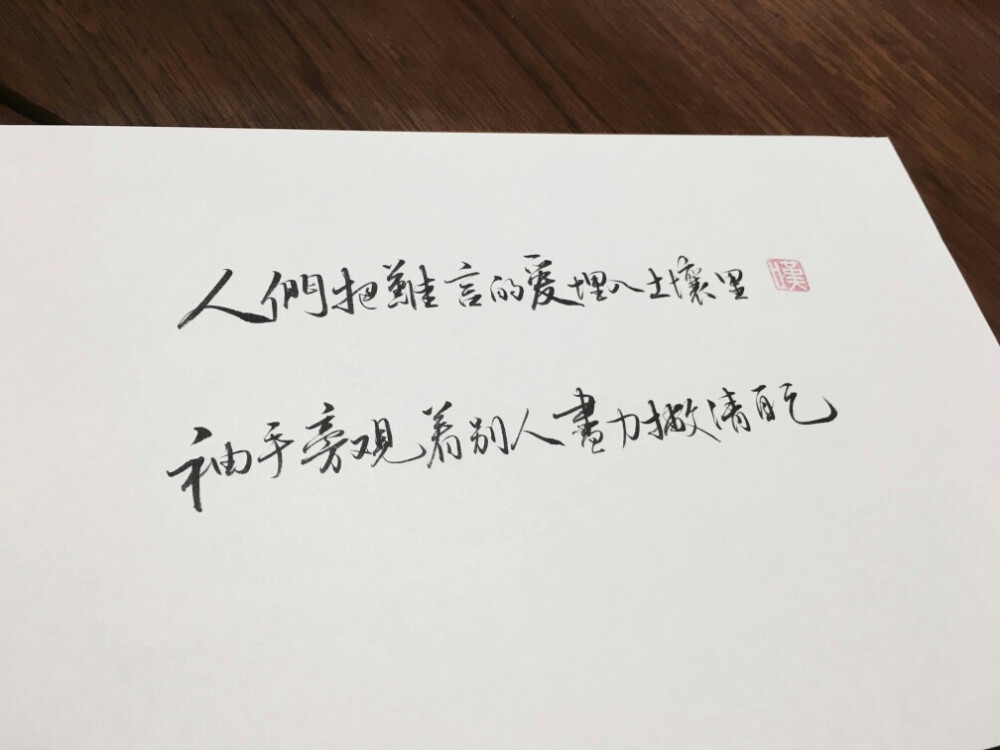 人們把難言的爱埋入土壤里 漢
袖手旁观着别人盡力撇清自己